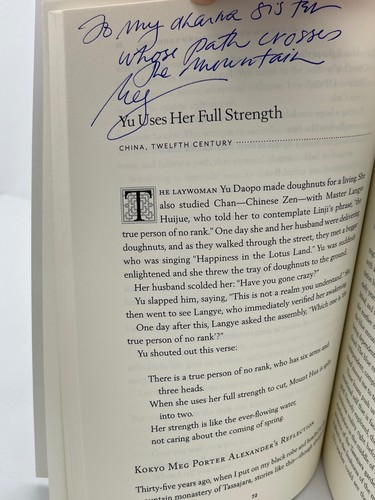 To my dharma sister
whose path crosses
the mountain
Meg
Yu Uses Her Full Strength
CHINA, TWELFTH CENTURY
THE LAYWOMAN Yu Daopo made doughnuts for a living. She
also studied Chan—Chinese Zen—with Master Langye
Huijue, who told her to contemplate Linji's phrase, "the
true person of no rank." One day she and her husband were delivering
doughnuts, and as they walked through the street, they met a beggar
who was singing "Happiness in the Lotus Land." Yu was suddenly
enlightened and she threw the tray of doughnuts to the ground.
Her husband scolded her: "Have you gone crazy?"
Yu slapped him, saying, "This is not a realm you understand." She
then went to see Langye, who immediately verified her awakening.
One day after this, Langye asked the assembly, "Which one is the
true person of no rank'?"
Yu shouted out this verse:
There is a true person of no rank, who has six arms and
three heads.
When she uses her full strength to cut, Mount Hua is split
into two.
Her strength is like the ever-flowing water,
not caring about the coming of spring.
KOKYO MEG PORTER ALEXANDER'S REFLECTION
Thirty-five years ago, when I put on my black robe and
mountain monastery of Tassajara, stories like this—though